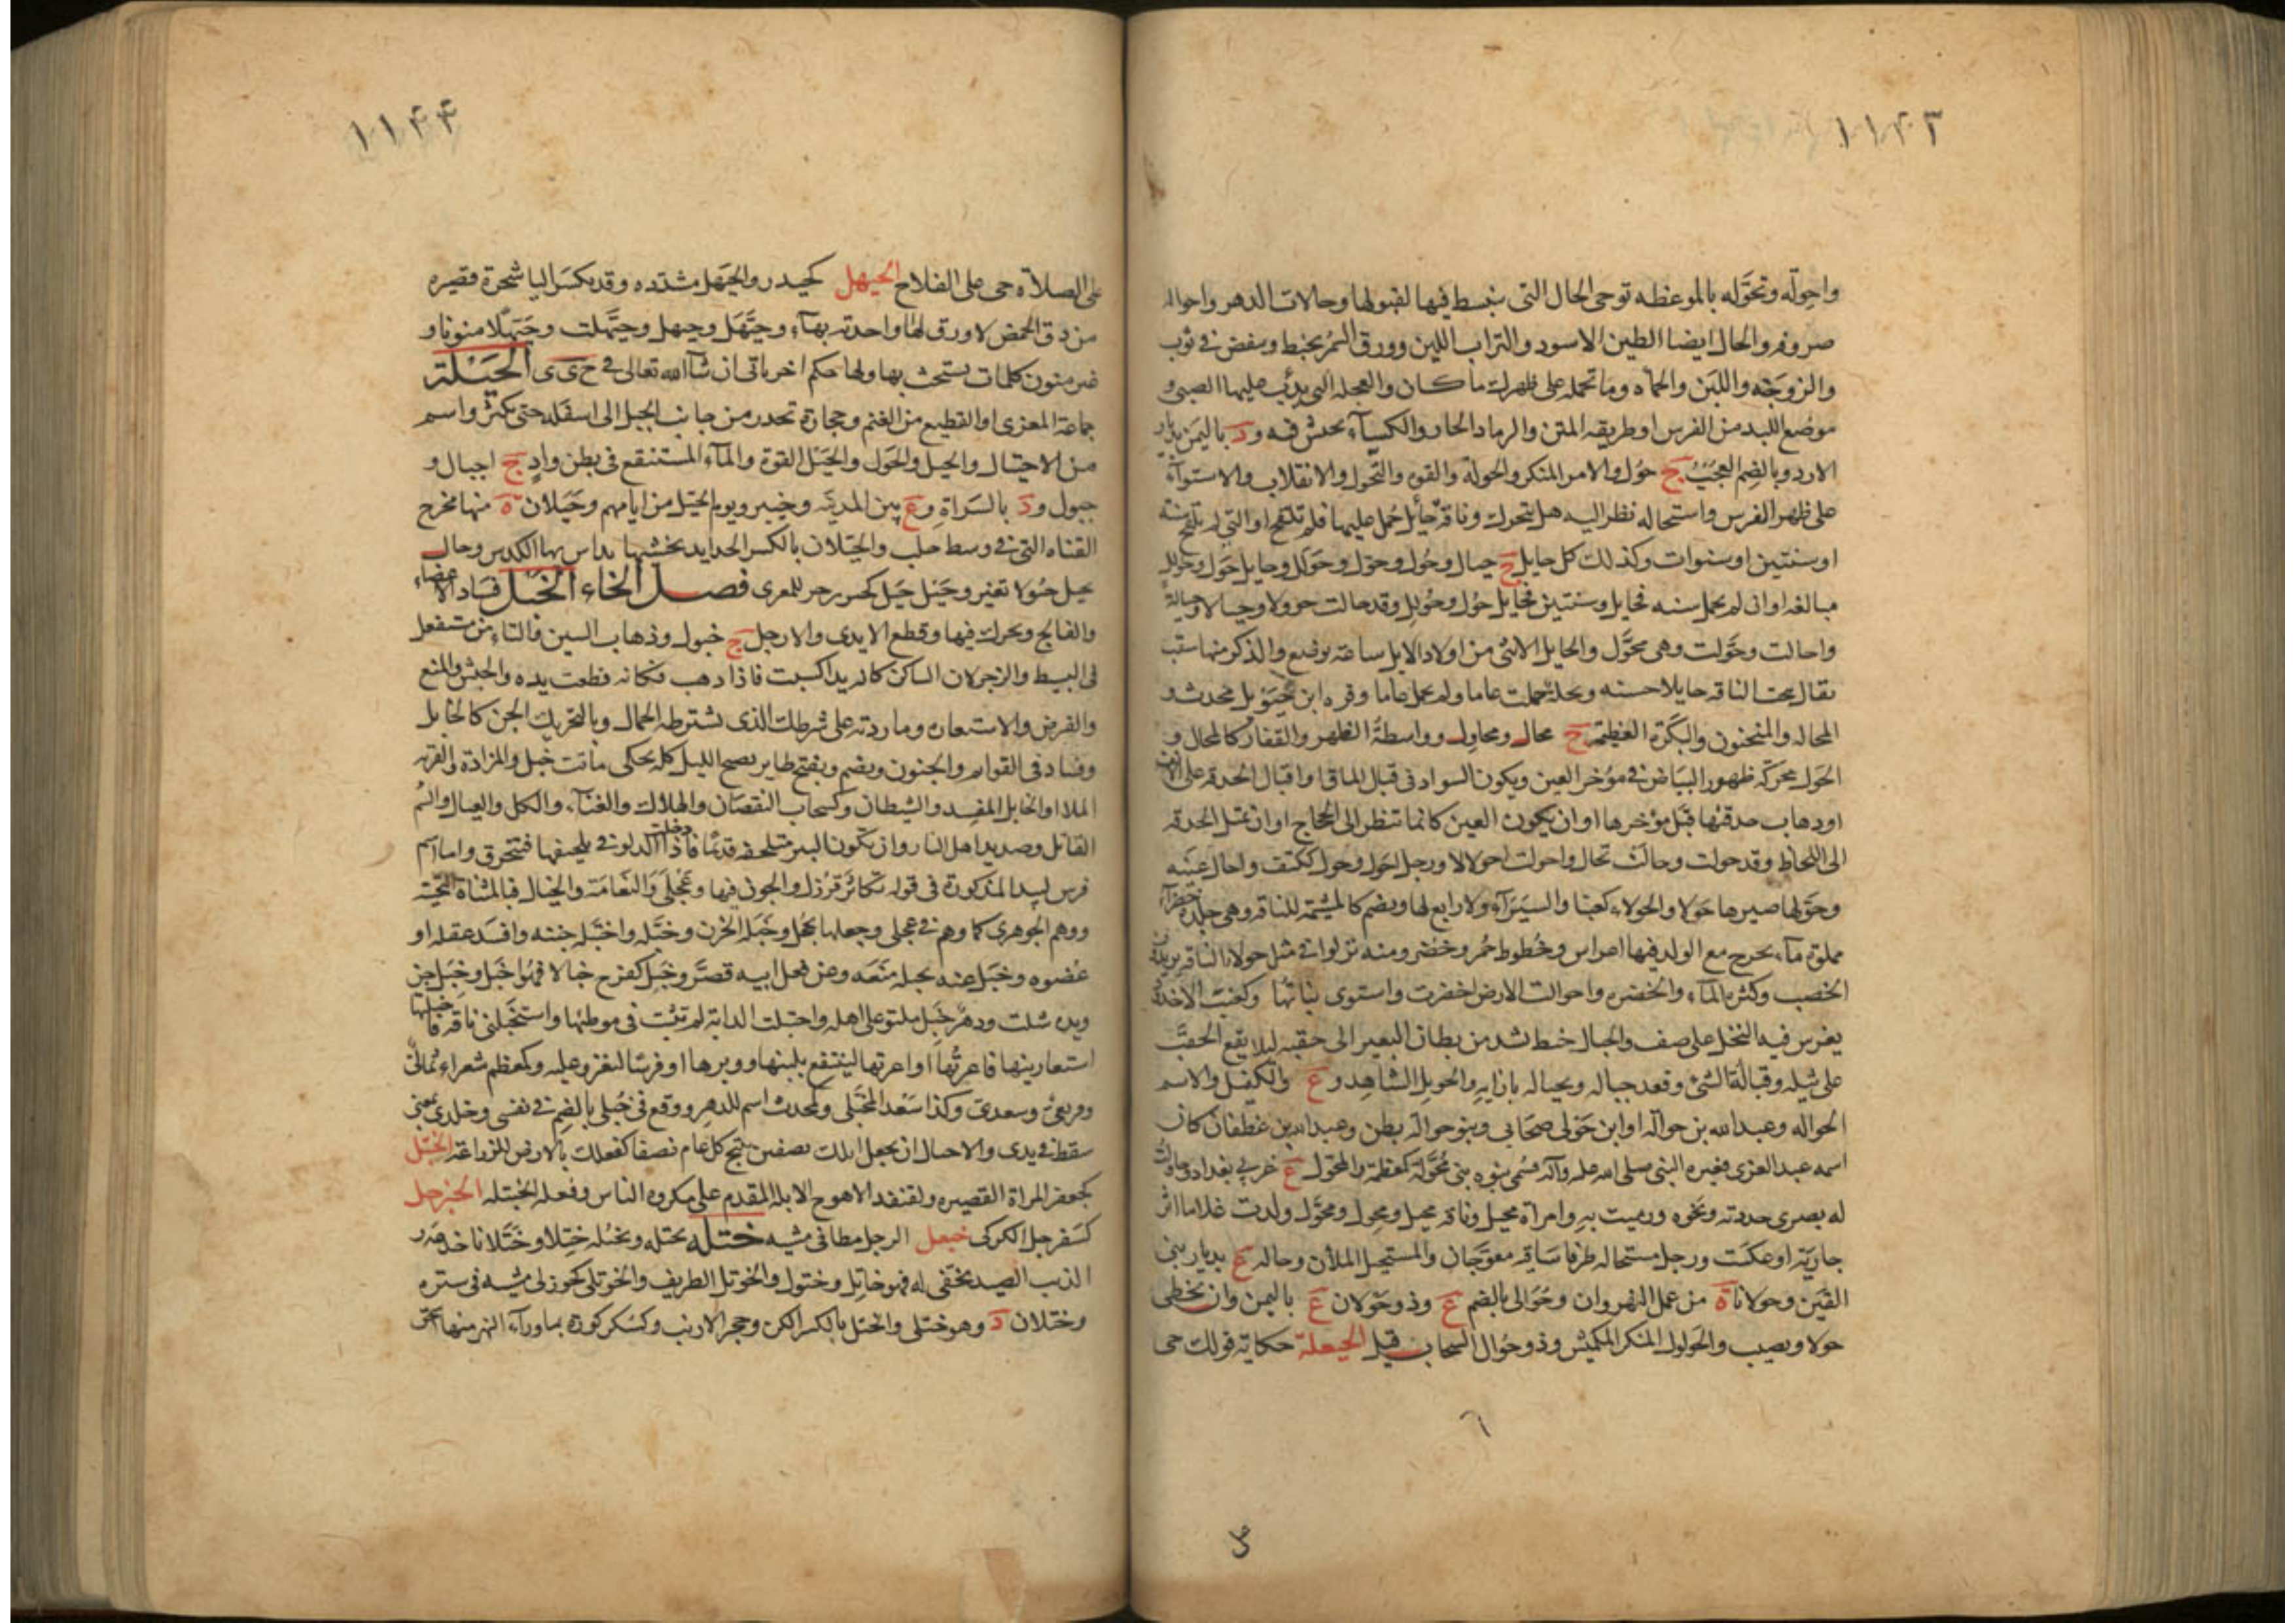 ١١٤٣
واحوله وتحوَّله بالموعظه توحى الحال التى ينبسط فيها لقبولها وحالات الدهر واحواله
صروفه والحال ايضا الطين الاسود والتراب اللين وورق السمر يخبط وينفض فى ثوب
والزوجه واللبن والحماه وما تحمله على ظهرك ما كان والعجله التى يدب عليها الصبى و
موضع اللبد من الفرس او طريقه المتن والرماد الحار والكسآء يحتش فيه و د باليمن بديار
الازد وبالضم العجب ج حوُل والامر المنكر والحولة والقوه والتحول والانقلاب والاستوآء
على ظهر الفرس واستحاله نظر اليه هل يتحرك وناقة حائل حُمل عليها فلم تلقح او التى لم تلقح سنه
او سنتين او سنوات وكذلك كل حايل ج حيال وحُول وحوّل وحولل وحايل حُول وحولل
مبالغه او ان لم يحمل سنه فحايل وسنتين فحايل حُول وحُولل وقد حالت حوولا وحيالا وحيالة
واحالت وحَوّلت وهى محوّل والحايل الانثى من اولاد الابل ساعة توضع والذكر منها سقب
يقال نتجت الناقه حايلا حسنه ونخلة حملت عاما ولم يحمل عاما وقره ابن حَيوَيل محدث و
المحاله والمنجنون والبكرة العظيمة ج محال ومحاول وواسطة الظهر والفقار كالمحال و
الحَول محركة ظهور البياض فى مؤخر العين ويكون السواد فى قبل الماق او اقبال الحدقه على الانف
او ذهاب حدقتها قبل مؤخرها او ان يكون العين كانما تنظر الى الحجاج او ان تميل الحدقه
الى اللحاظ وقد حولت وحالت تحال واحولت احولالا ورجل احول وحول ككتف واحال عينه
وحوّلها صيرها حَولا والحولاء كعنبا والسيرآء ولا رابع لها ويضم كالمشيمة للناقه وهى جلدة خضرآء
مملوة مآء يخرج مع الولد فيها اغراس وخُطوط حُمر وخضر ومنه نزلوا فى مثل حولاء الناقه يريدون
الخصب وكثرة المآء والخضره واحوالت الارض اخضرت واستوى نباتها وكعنب الاخدود
يغرس فيه النخل على صف والحيال خيط يشد من بطان البعير الى حقبه ليلا يقع الحقب
على ثيله وقبالة الشئ وقعد حياله وبحياله بازايه والحويل الشاهد و ع والكفيل والاسم
الحواله وعبد الله بن حوالة او ابن حَولى صحابى وبنو حوالة بطن وعبد الله بن غطفان كان
اسمه عبد العزى فغيره النبى صلى الله عليه وآله فسُمى بنوه بنى مُحوَّلة كمعظمة والمحول ع غربى بغداد وحاولت
له بصرى حددته نحوه ورميت به وامرأة محيل وناقه محيل ومحول ومحوّل ولدت غلاما اثر
جارية او عكست ورجل مستحاله طرفا ساقيه معوجان والمستحيل الملآن وحاله ع بديار بنى
القين وحولايا ة من عمل النهروان وحُوالى بالضم ع وذو حَولان ع باليمن وان يخطى
حولا ويصيب والحَولول المنكر الكميش وذو حُوال السحاب قيل الحيعلة حكاية قولك حى
١١٤٤
على الصلاة حى على الفلاح الحيهل كحيدر والحيّهل مشدده وقد يكسر اليا شجرة قصيره
من دق الحمض لا ورق لها واحدته بهآء وحيَّهَل وحيهل وحيَّهلك وحيّهلًا منونا و
غير منون كلمات يستحث بها ولها حكم اخر ياتى ان شآ الله تعالى فى ح ى ى الحَيْلة
جماعة المعزى او القطيع من الغنم وحجارة تحدر من جانب الجبل الى اسفله حتى يكثر واسم
من الاحتيال والحيل والحَول والحَيل القوة والمآء المستنقع فى بطن وادٍ ج احيال و
حيول و د بالسَراة و ع بين المدينه وخيبر ويوم الحيل من ايامهم وحَيلان ة منها مخرج
القناه التى فى وسط حلب والحيلان بالكسر الحدايد بخشبها يداس بها الكدس وحال
يحيل حيُولا تغير وحَيل حَيل كجير زجر للمعزى فصل الخاء الخَبل فساد الاعضاء
والفالج ويحرك فيها وقطع الايدى والارجل ج خبول وذهاب السين والتاء من مستفعل
فى البسيط والرجز لان الساكن كانه يد السبب فاذا ذهب فكانه قطعت يده والحبس والمنع
والقرض والاستعاره وما زدته على شرطك الذى يشترطه الجمال وبالتحريك الجن كالخابل
وفساد فى القوام والجنون ويضم ويفتح طاير يصيح الليل كله يحكى ماتت خبل والمزادة والقربه
الملا او الخابل المفسد والشيطان وكسحاب النقصان والهلاك والعنآء والكل والعيال والسم
القاتل وصديد اهل النار وان تكون البير متلجفه قديما فاذا دخلت الدلو فى تلجيفها فتتخرق واما اسم
فرس لبيد المذكورة فى قوله تكاثر قرزل والجون فيها وعَجْلَى والنعامة والخيال فبالمثناة التحتية
ووهم الجوهرى كما وهم فى عجلى وجعلها تحجل وخبله الحزن وخبّله واختبله جننه وافسد عقله او
عُضوه وخبله عنه يخبله منعه وعن فعل ابيه قصر وخبل كفرح خبالا فهُو اخبل وخَبِل جن
ويده شلت ودهر خَبِل ملتو على اهله واختبلت الدابة لم تثبت فى موطنها واستخبلنى ناقه فاخبلتها
استعارينها فاعرتُها او اعرتها لينتفع بلبنها ووبرها او فرسًا ليغزو عليه وكمعظم شعراء ثمالى
وقريعى وسعدى وكذا سعد المخبّلى وكمحدث اسم للدهر ووقع فى خُبلى بالضم فى نفسى وخلدى بمعنى
سقط فى يدى والاخبال ان يجعل ابلك نصفين ينتج كل عام نصفا كفعلك بالارض للزراعة الخبتل
كجعفر المراة القصيره وكقنفذ الاهوج الابله المقدم على مكروه الناس وفعله الخبتله الخبرجل
كسفرجل الكركى خبعل الرجل مطا فى مشيه ختله يختله ويختُله خَتلا وخَتَلانا خدعه و
الذيب الصيد تخفّى له فهو خاتِل وختول والخوتل الظريف والخوتلى كخوزلى مشيه فى ستره
وختلان د وهو ختلى والختل بالكسر الكن وجحر الارنب وكسُكر كورة بماورآء النهر منها